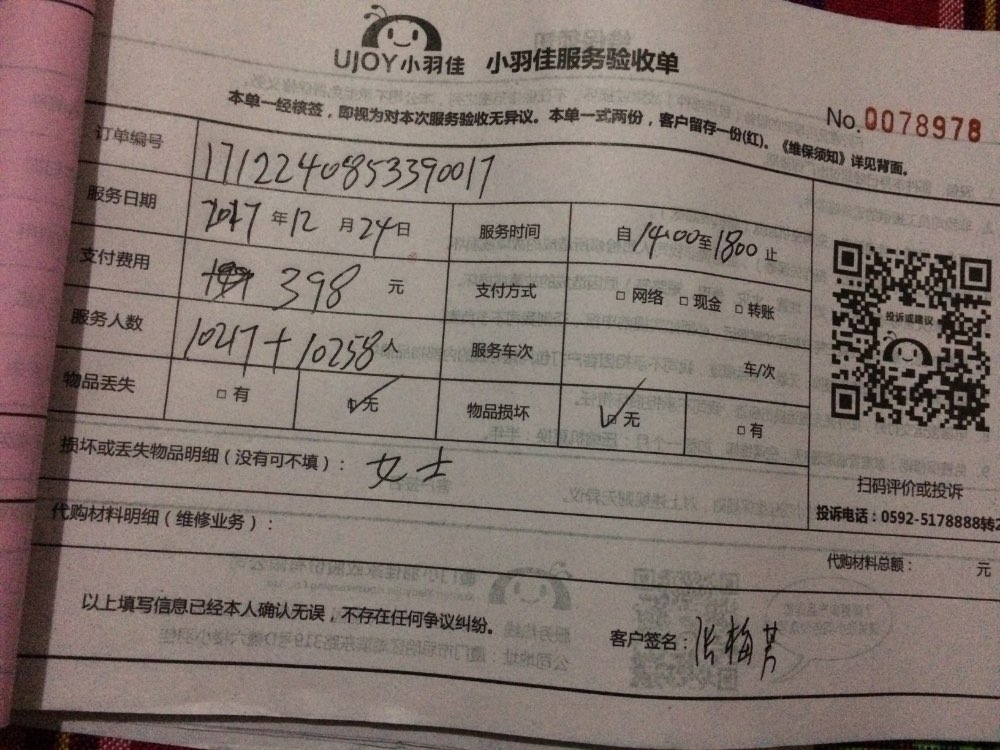 UJOY小羽佳 小羽佳服务验收单
No.0078978
本单一经核签，即视为对本次服务验收无异议。本单一式两份，客户留存一份(红)。《维保须知》详见背面。
订单编号 1712240853390017
服务日期 2017 年 12 月 24 日 服务时间 自 14:00 至 1800 止
支付费用 398 元 支付方式 □ 网络 □ 现金 □ 转账
服务人数 10217+10258 服务车次 车/次
物品丢失 □ 有 □ 无 物品损坏 □ 无 □ 有
投诉或建议
损坏或丢失物品明细（没有可不填）： 女士
扫码评价或投诉
投诉电话：0592-5178888转2
代购材料明细（维修业务）：
代购材料总额： 元
以上填写信息已经本人确认无误，不存在任何争议纠纷。
客户签名：张梅芳